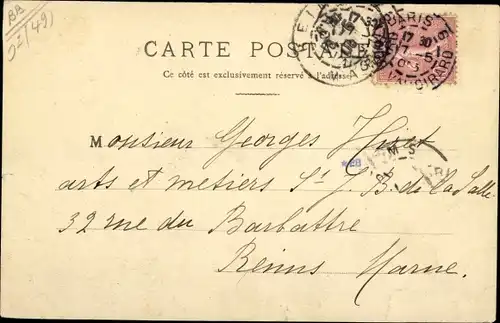 BB
(49)
CARTE POSTALE
Ce côté est exclusivement réservé à l'adresse
PARIS
17 30
17-5
VAUGIRARD
Monsieur Georges
arts et metiers St J. B. de La Salle
32 rue du Barbattre
Reims Marne.